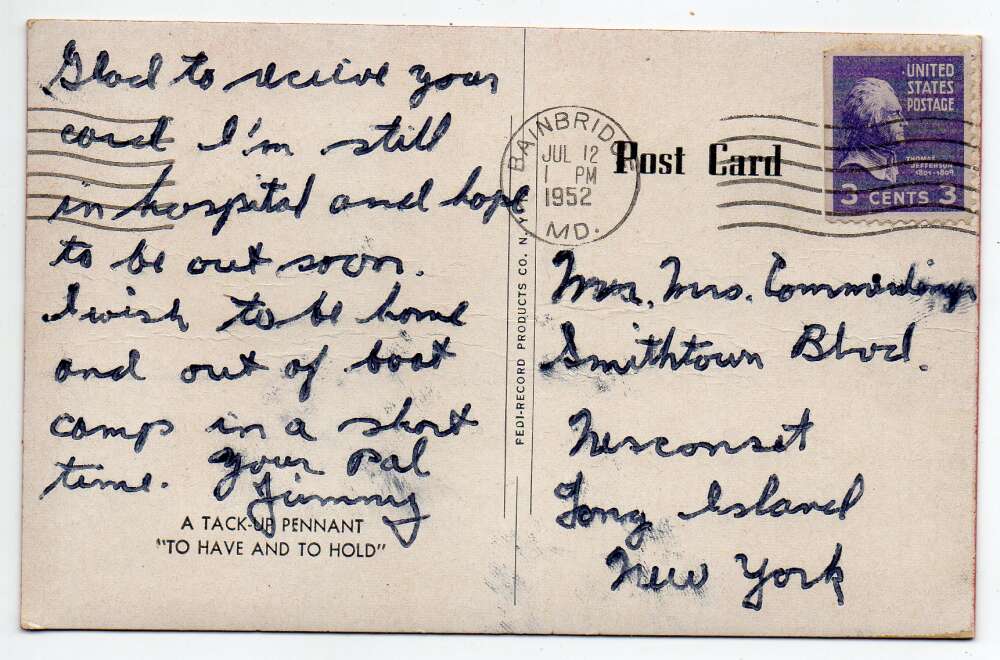 Glad to receive your
card I'm still
in hospital and hope
to be out soon.
I wish to be home
and out of boat
camp in a short
time. Your Pal
Jimmy
A TACK-UP PENNANT
"TO HAVE AND TO HOLD"
FEDI-RECORD PRODUCTS CO. N. Y.
BAINBRIDGE
JUL 12
1 PM
1952
MD.
Post Card
UNITED
STATES
POSTAGE
THOMAS
JEFFERSON
1801-1809
3 CENTS 3
Mrs.
Smithtown Blvd.
Nesconset
Long Island
New York